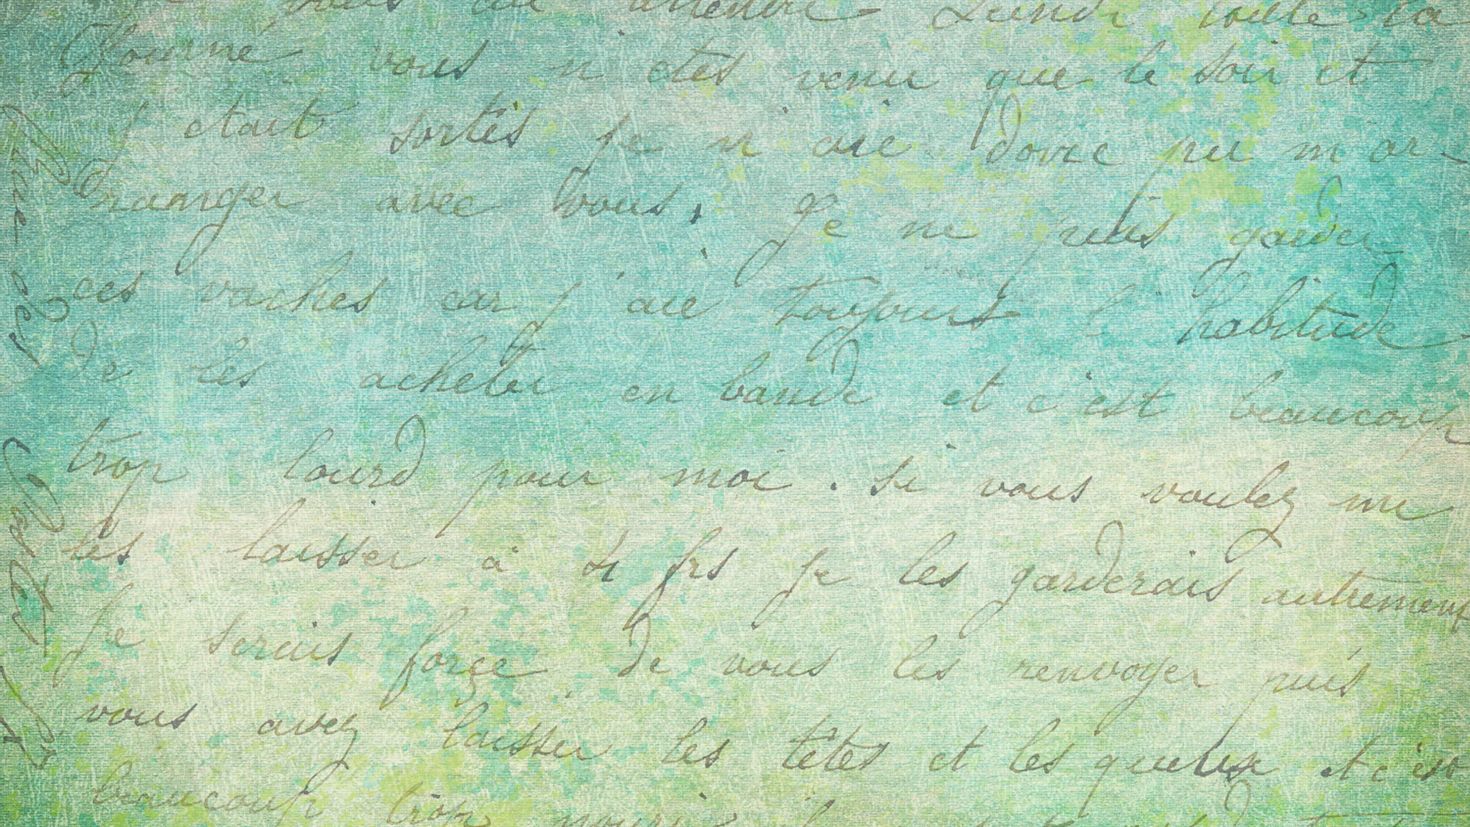 attendre Lundi toute la
Journé vous n'etes venu que le soir et
j etait sortis je n'aie donc pu m'ar-
ranger avec vous. Je ne puis garder
ces vaches car j'aie toujours l'habitude
de les acheter en bande et c'est beaucoup
trop lourd pour moi. si vous voulez me
les laisser à 4 frs je les garderais autrement
Je serais forcé de vous les renvoyer puis
vous avez laisser les têtes et les queux et c'est
beaucoup trop
Rue des Postes